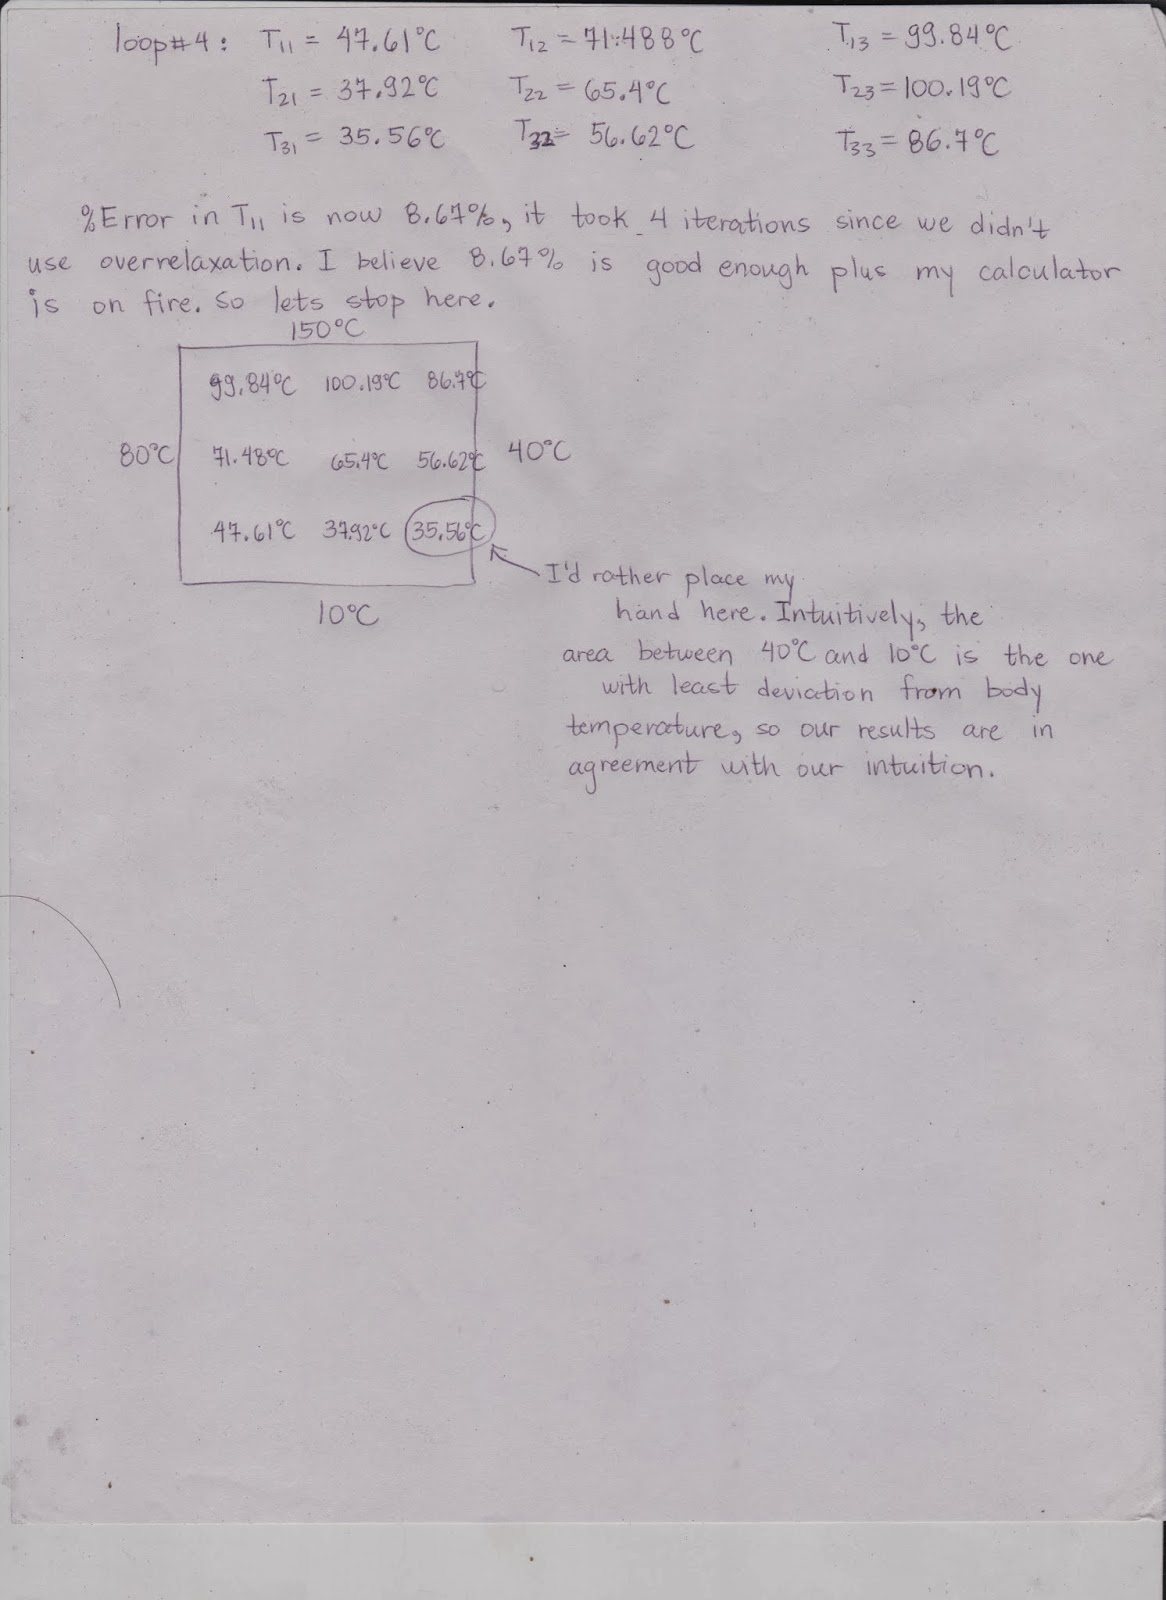 loop#4: T11 = 47.61°C T12 = 71.488°C T13 = 99.84°C
T21 = 37.92°C T22 = 65.4°C T23 = 100.19°C
T31 = 35.56°C T32 = 56.62°C T33 = 86.7°C
%Error in T11 is now 8.67%, it took 4 iterations since we didn't
use overrelaxation. I believe 8.67% is good enough plus my calculator
is on fire. So lets stop here.
150°C
99.84°C 100.19°C 86.7°C
80°C 71.48°C 65.4°C 56.62°C 40°C
47.61°C 37.92°C 35.56°C
10°C
I'd rather place my
hand here. Intuitively, the
area between 40°C and 10°C is the one
with least deviation from body
temperature, so our results are in
agreement with our intuition.